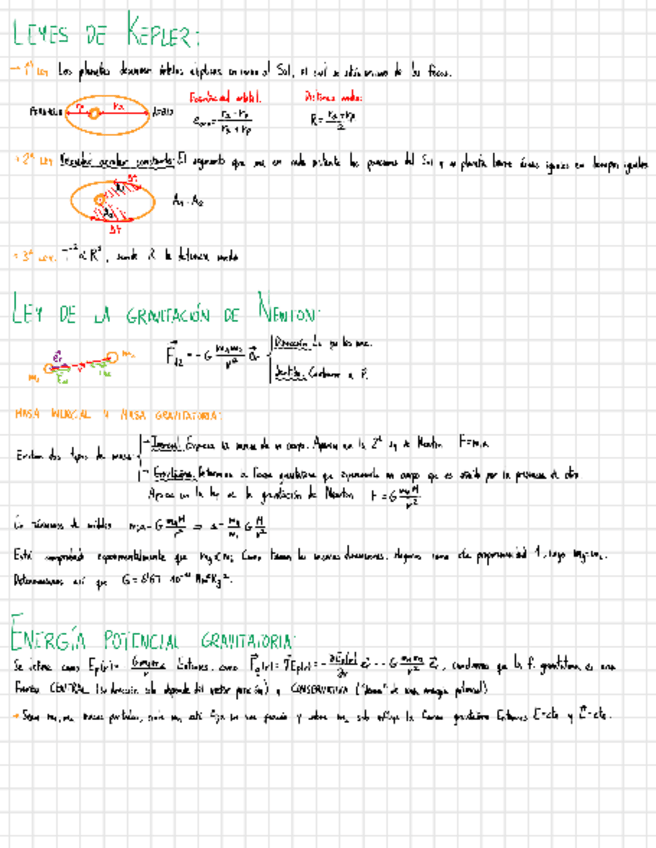 LEYES DE KEPLER:
→ 1ª Ley Los planetas describen órbitas elípticas en torno al Sol, el cual se sitúa en uno de los focos.
Excentricidad orbital. Distancia media:
PERIHELIO rp ra AFELIO e = (ra - rp)/(ra + rp) R = (ra + rp)/2
→ 2ª Ley Velocidad areolar constante: El segmento que une en cada instante las posiciones del Sol y un planeta barre áreas iguales en tiempos iguales
Δt
A1
A2 A1 = A2
Δt
→ 3ª Ley: T² ∝ R³, siendo R la distancia media
LEY DE LA GRAVITACIÓN DE NEWTON:
F12 = -G m1m2/r² er Dirección: La que los une.
Sentido: Contrario a r.
MASA INERCIAL Y MASA GRAVITATORIA:
Existen dos tipos de masa
→ Inercial: Expresa la inercia de un cuerpo. Aparece en la 2ª Ley de Newton F=mia
→ Gravitatoria: Determina la fuerza gravitatoria que experimenta un cuerpo que es atraído por la presencia de otro
Aparece en la ley de la gravitación de Newton F = G mgM/r²
En términos de módulos mia = G mgM/r² ⇒ a = mg/mi G M/r²
Está comprobado experimentalmente que mg ∝ mi Como tienen las mismas dimensiones, elegimos como cte proporcionalidad 1, luego mg=mi.
Determinamos así que G = 6'67 10⁻¹¹ Nm²Kg⁻².
ENERGÍA POTENCIAL GRAVITATORIA:
Se define como Ep(r) = Entonces, como , concluimos que la f. gravitatoria es una
Fuerza CENTRAL (su dirección solo depende del vector posición) y CONSERVATIVA ("deriva" de una energía potencial)
→ Sean m1, m2 masas puntuales, m1 está fija en una posición y sobre m2 solo influye la fuerza gravitatoria Entonces E=cte y L=cte.